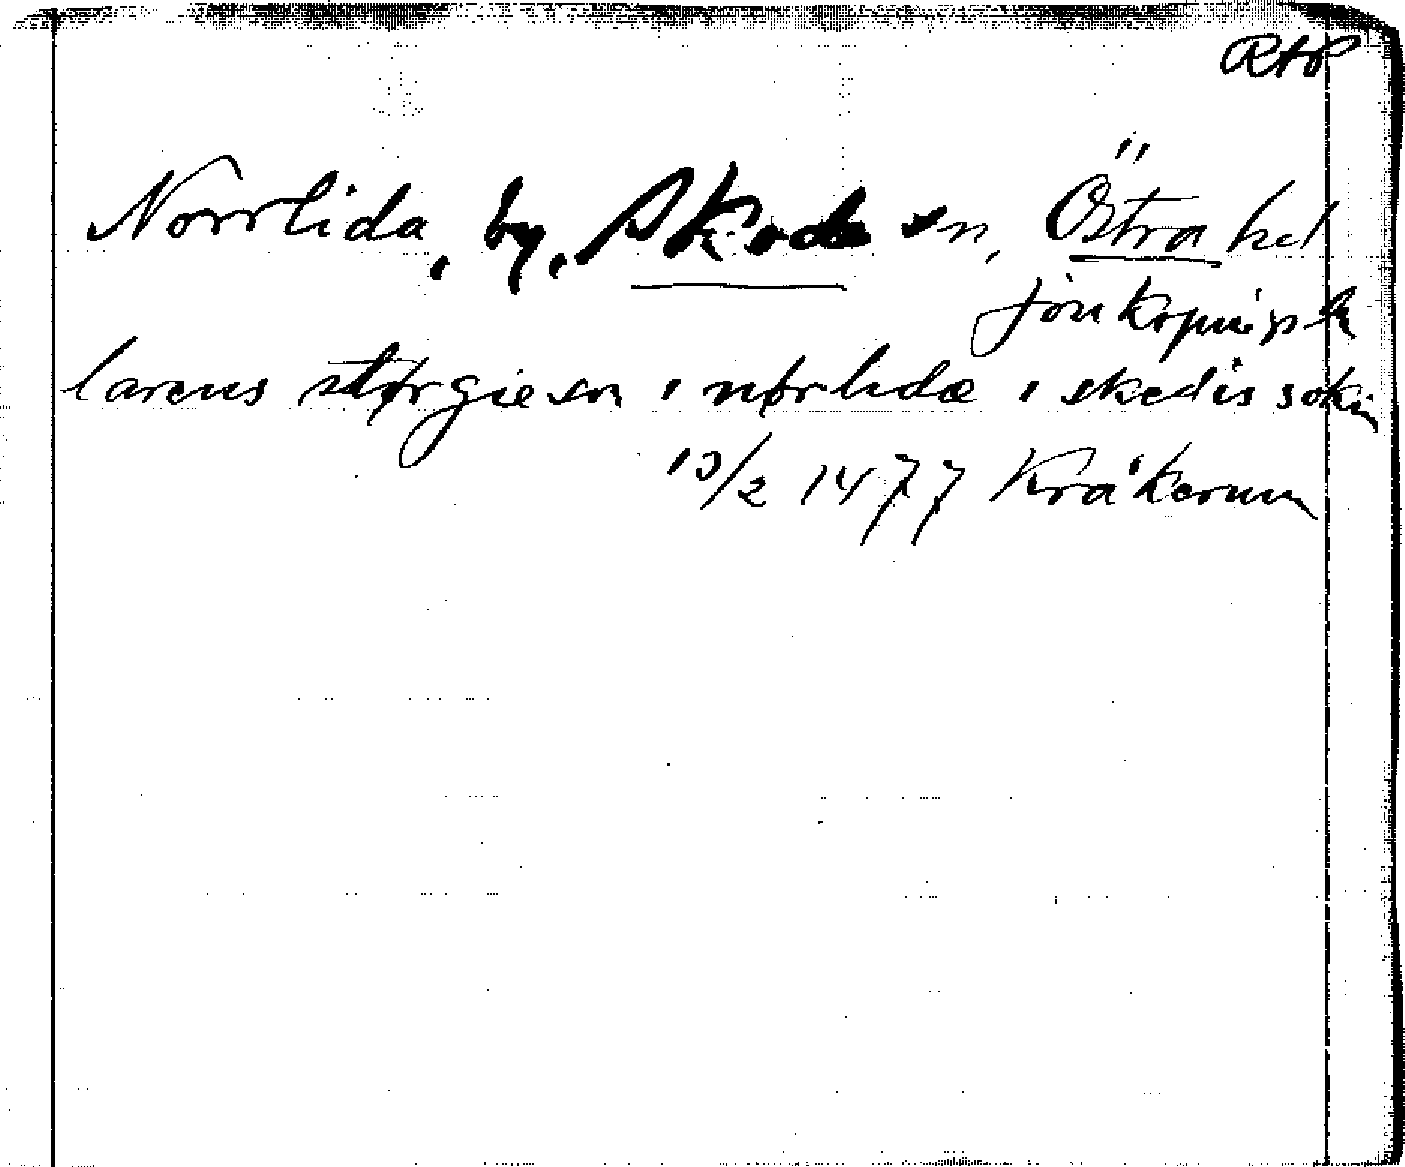 RAP
Norrlida, by, Skede sn, Östra hd
Jönköpings län
larens størgie son i nørlidæ i skedis sokin
10/2 1477 Kråkerum